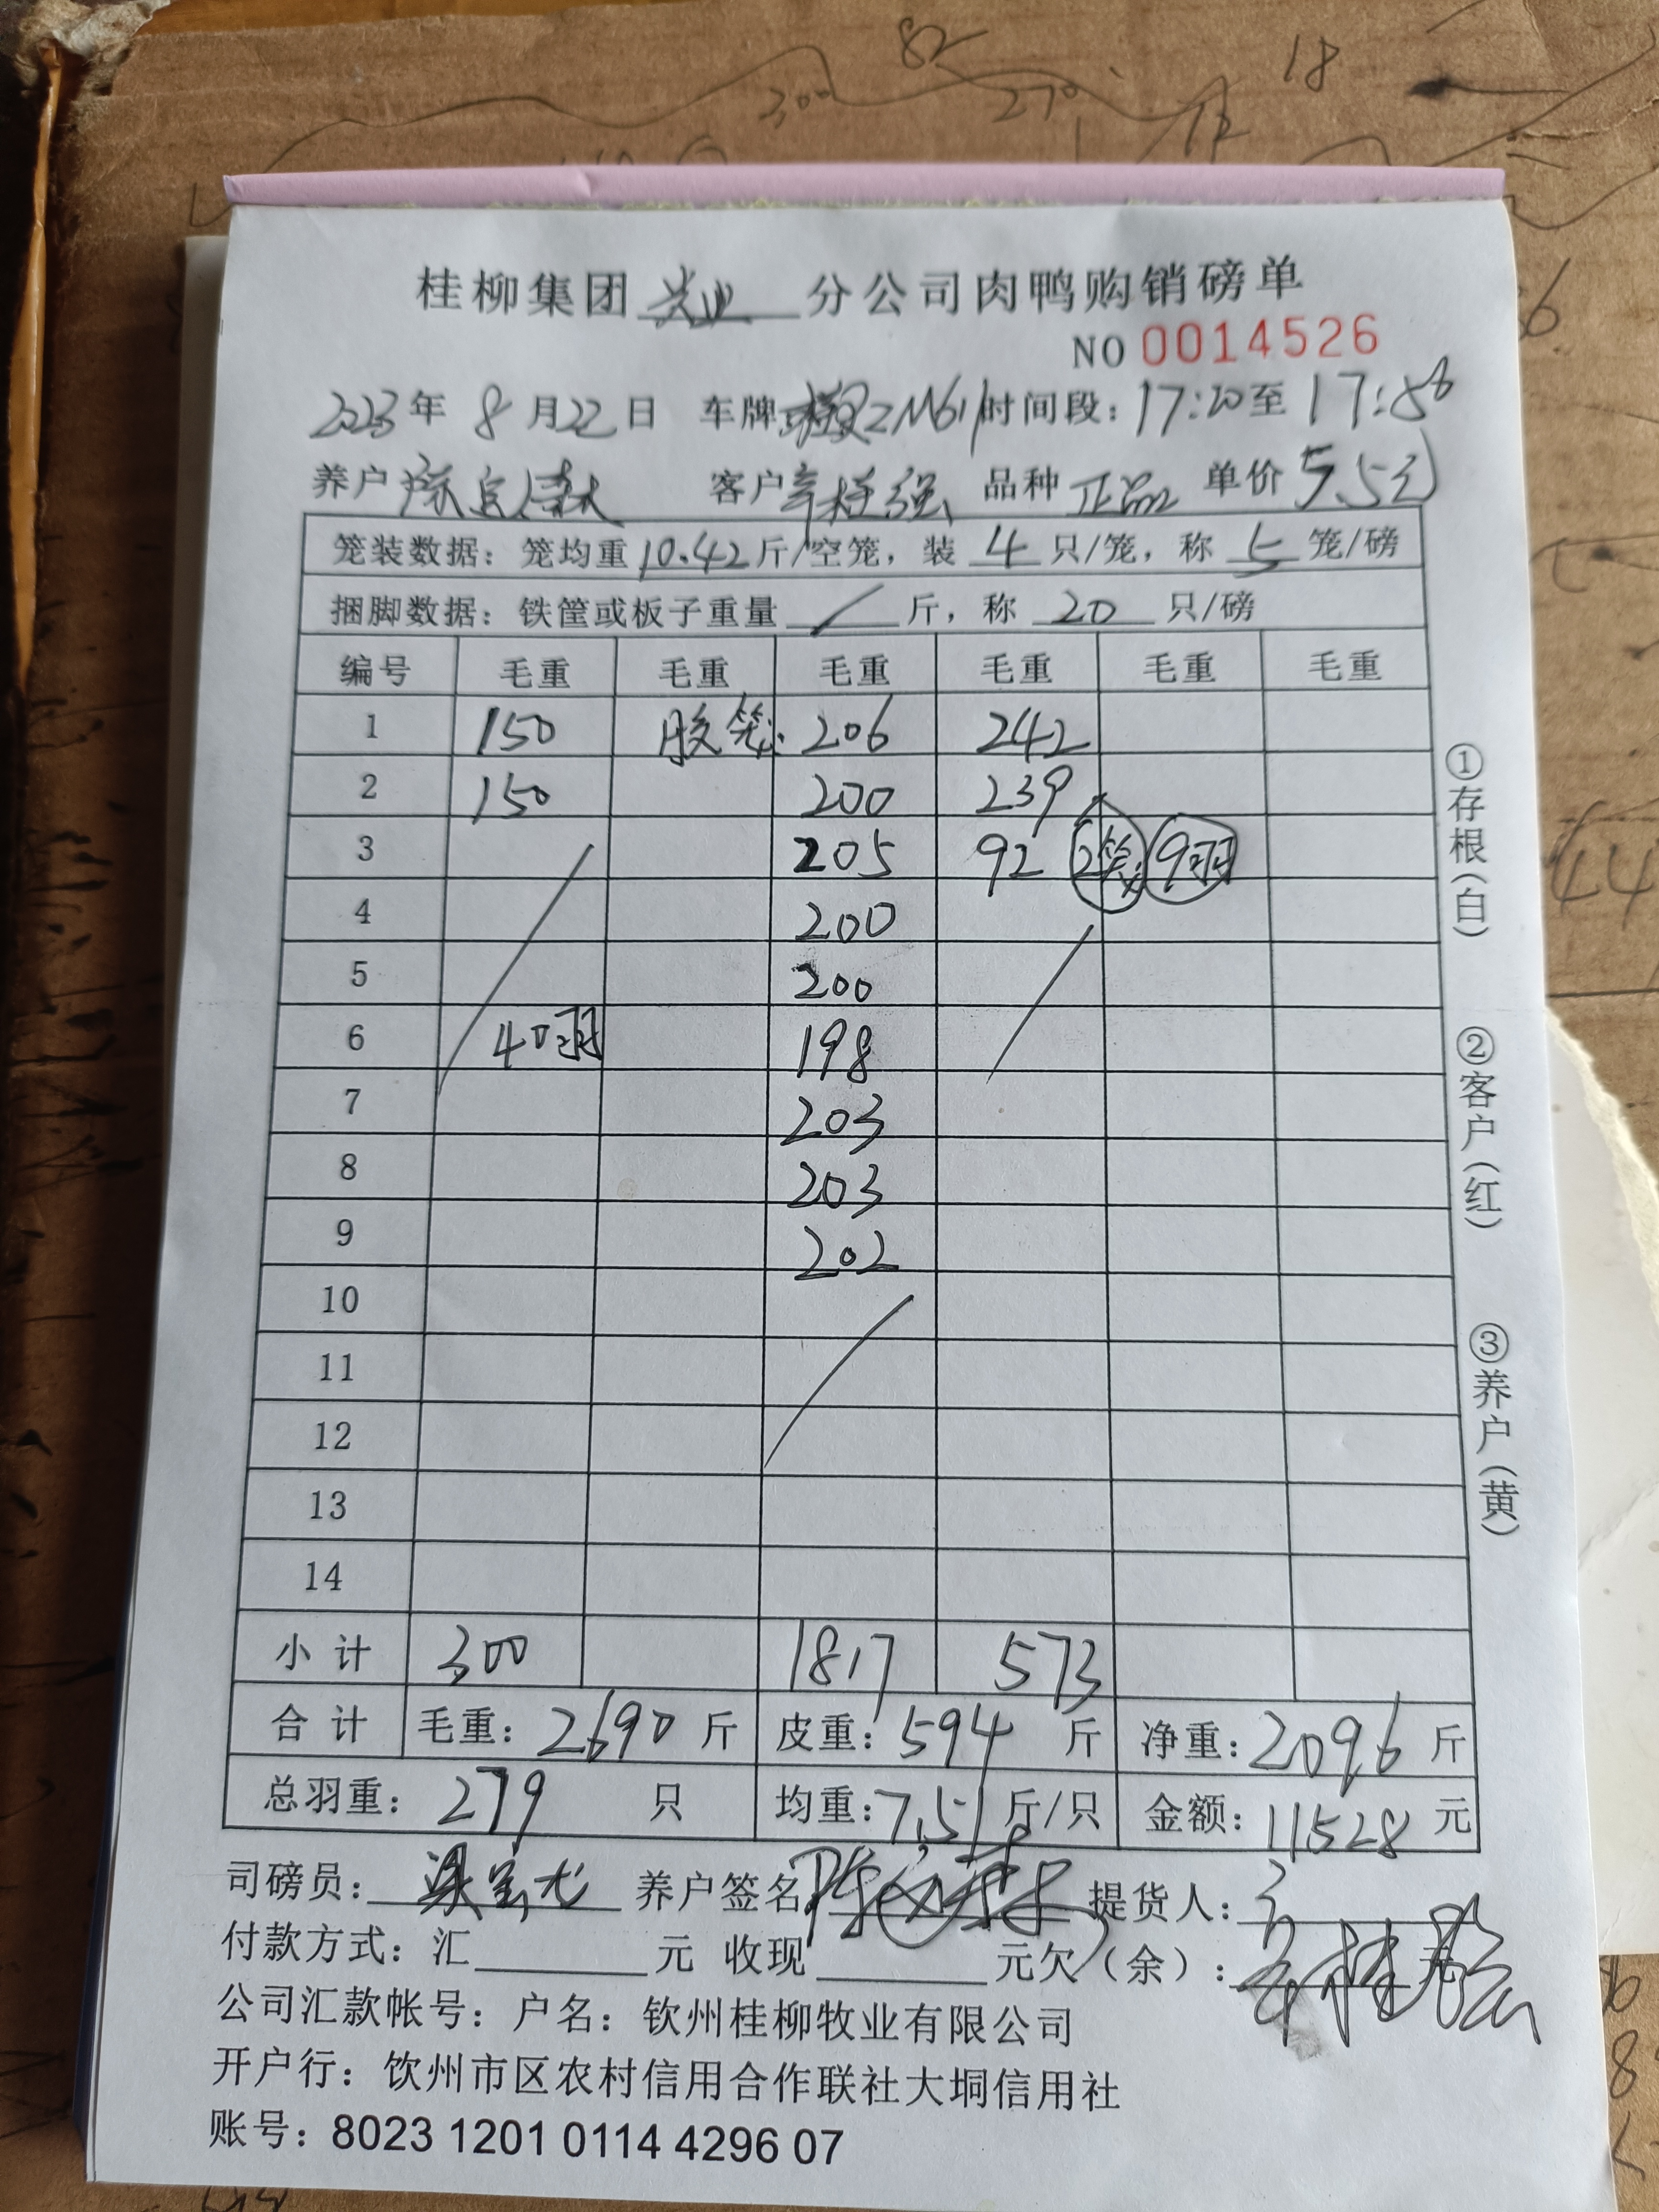 82
18
300
270
12
桂柳集团兴业分公司肉鸭购销磅单
NO 0014526
2023年8月22日 车牌 时间段：17:20至17:56
养户 客户辛桂强 品种正品 单价5.5元
笼装数据：笼均重10.42斤/空笼，装4只/笼，称5笼/磅
捆脚数据：铁筐或板子重量/斤，称20只/磅
编号 毛重 毛重 毛重 毛重 毛重 毛重
1 150 胶笼: 206 242
2 150 200 239
3 205 92 2笼 9羽
4 200
5 200
6 40羽 198
7 203
8 203
9 202
10
11
12
13
14
小计 300 1817 573
合计 毛重：2690斤 皮重：594斤 净重：2096斤
总羽重：279只 均重：7.51斤/只 金额：11528元
司磅员： 养户签名 提货人：
付款方式：汇 元 收现 元欠（余）： 元
公司汇款帐号：户名：钦州桂柳牧业有限公司
开户行：钦州市区农村信用合作联社大垌信用社
账号：8023 1201 0114 4296 07
①存根（白）
②客户（红）
③养户（黄）